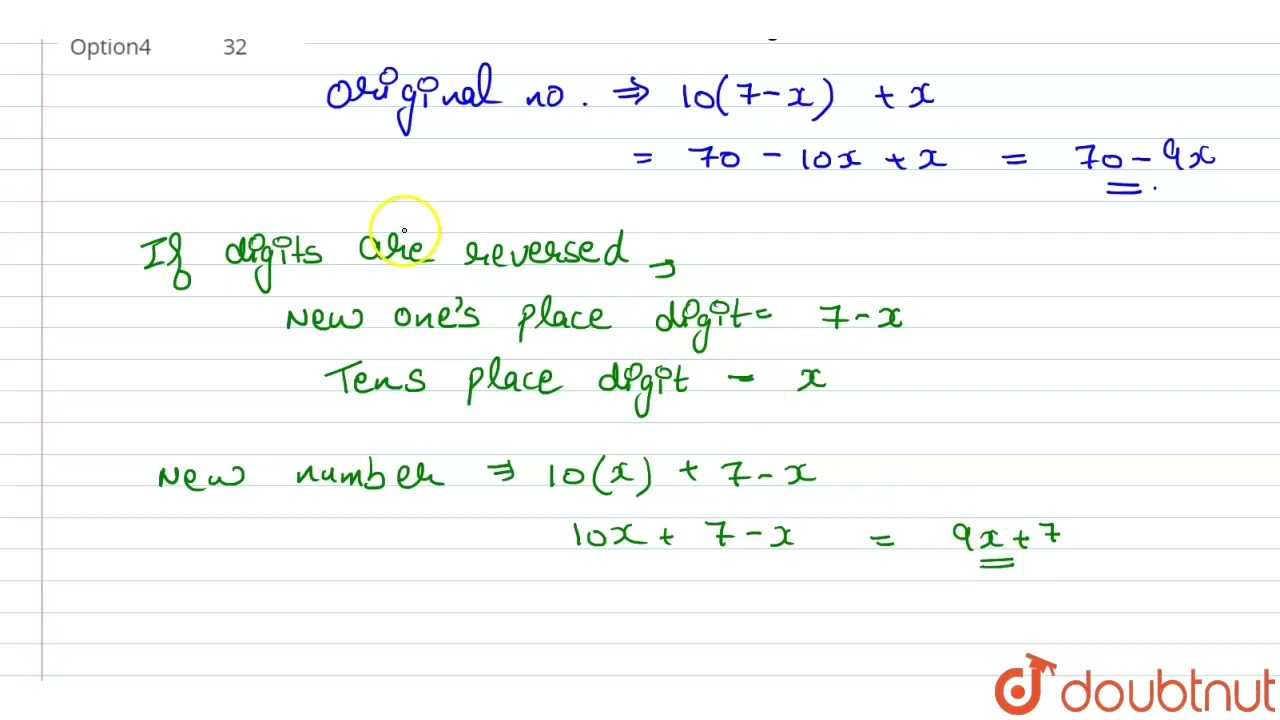 Option4 32
Original no. ⇒ 10(7-x) + x
= 70 - 10x + x = 70 - 9x
If digits are reversed →
New one's place digit = 7-x
Tens place digit - x
New number ⇒ 10(x) + 7-x
10x + 7-x = 9x+7
doubtnut